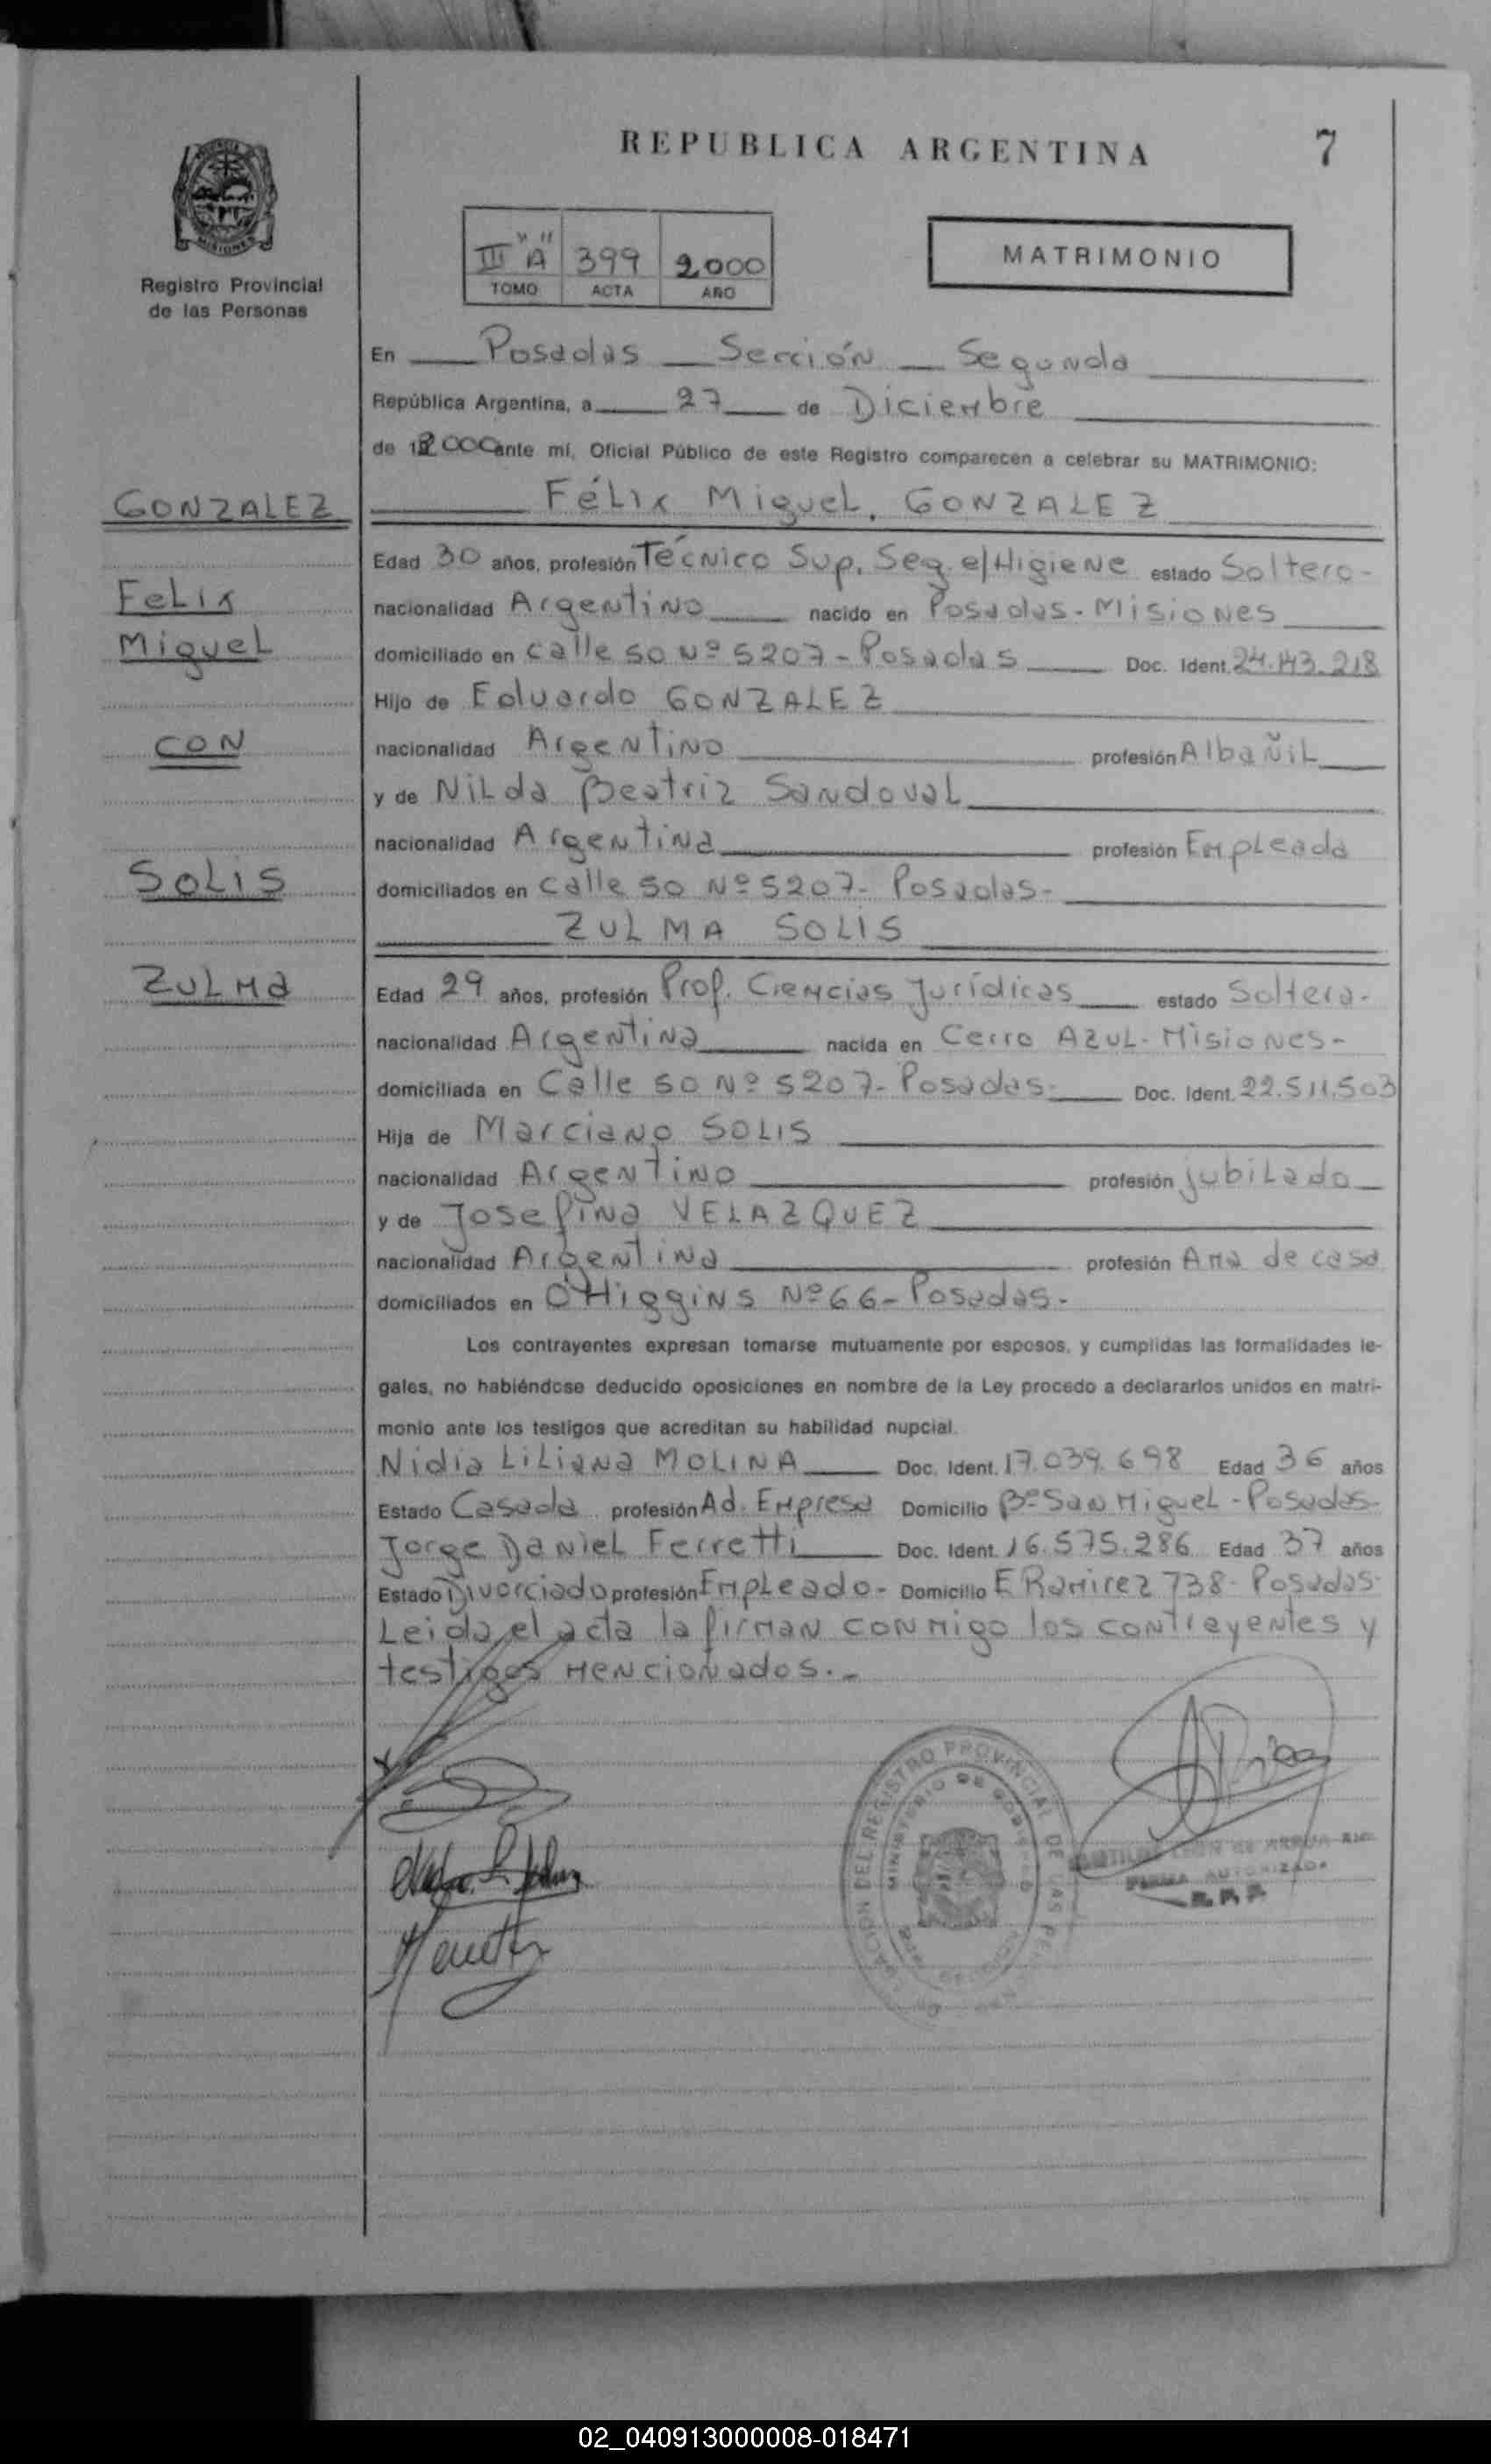 REPUBLICA ARGENTINA
7
III "A" 399 2000
TOMO ACTA AÑO
MATRIMONIO
MISIONES
Registro Provincial
de las Personas
En Posadas Sección Segunda
República Argentina, a 27 de Diciembre
de 2000 ante mí, Oficial Público de este Registro comparecen a celebrar su MATRIMONIO:
GONZALEZ
Félix Miguel, GONZALEZ
Edad 30 años, profesión Técnico Sup. Seg. e/Higiene estado Soltero-
Felix
nacionalidad Argentino nacido en Posadas-Misiones
Miguel
domiciliado en Calle 50 Nº 5207-Posadas Doc. Ident. 24.143.218
Hijo de Eduardo GONZALEZ
CON
nacionalidad Argentino profesión Albañil
y de Nilda Beatriz Sandoval
nacionalidad Argentina profesión Empleada
SOLIS
domiciliados en Calle 50 Nº 5207- Posadas-
ZULMA SOLIS
ZULMA
Edad 29 años, profesión Prof. Ciencias Jurídicas estado Soltera-
nacionalidad Argentina nacida en Cerro AZUL-Misiones-
domiciliada en Calle 50 Nº 5207-Posadas- Doc. Ident. 22.511.503
Hija de Marciano SOLIS
nacionalidad Argentino profesión jubilado
y de Josefina VELAZQUEZ
nacionalidad Argentina profesión Ama de casa
domiciliados en O'Higgins Nº 66-Posadas-
Los contrayentes expresan tomarse mutuamente por esposos, y cumplidas las formalidades le-
gales, no habiéndose deducido oposiciones en nombre de la Ley procedo a declararlos unidos en matri-
monio ante los testigos que acreditan su habilidad nupcial.
Nidia Liliana MOLINA Doc. Ident. 17.039.698 Edad 36 años
Estado Casada profesión Ad. Empresa Domicilio Bº San Miguel-Posadas-
Jorge Daniel Ferretti Doc. Ident. 16.575.286 Edad 37 años
Estado Divorciado profesión Empleado- Domicilio E Ramirez 738-Posadas-
Leida el acta la firman conmigo los contrayentes y
testigos mencionados.-
REGISTRO PROVINCIAL DE LAS
MINISTERIO DE GOBIERNO
FIRMA AUTORIZADA
R.P.P.
02_040913000008-018471